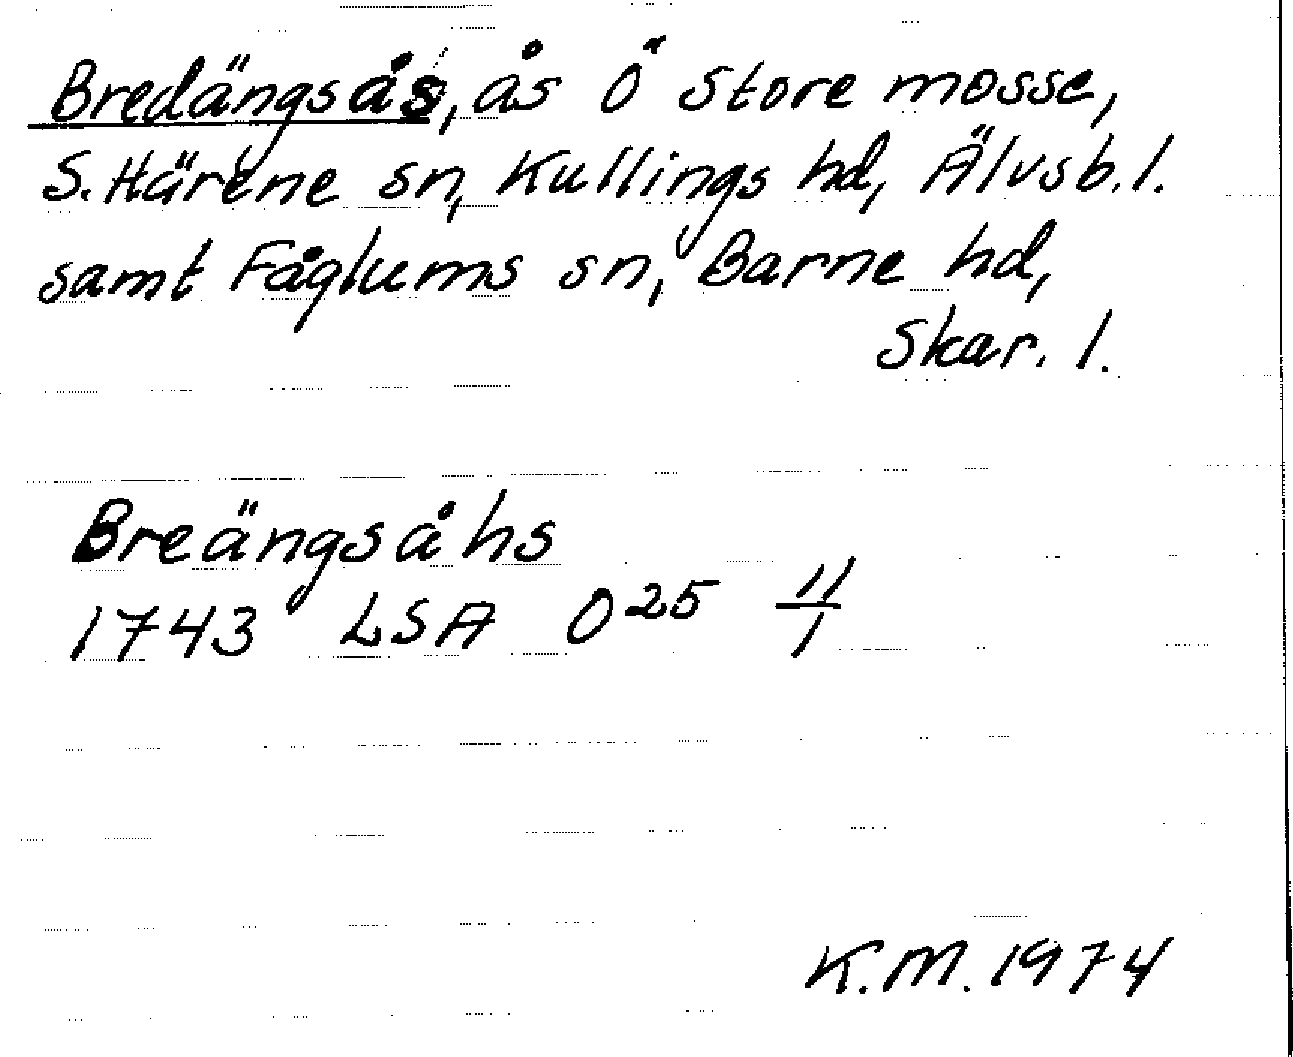 Bredängsås, ås Ö Store mosse,
S. Härene sn, Kullings hd, Älvsb. l.
samt Fåglums sn, Barne hd,
Skar. l.
Breängsåhs
1743 LSA O25 11/1
K.M. 1974